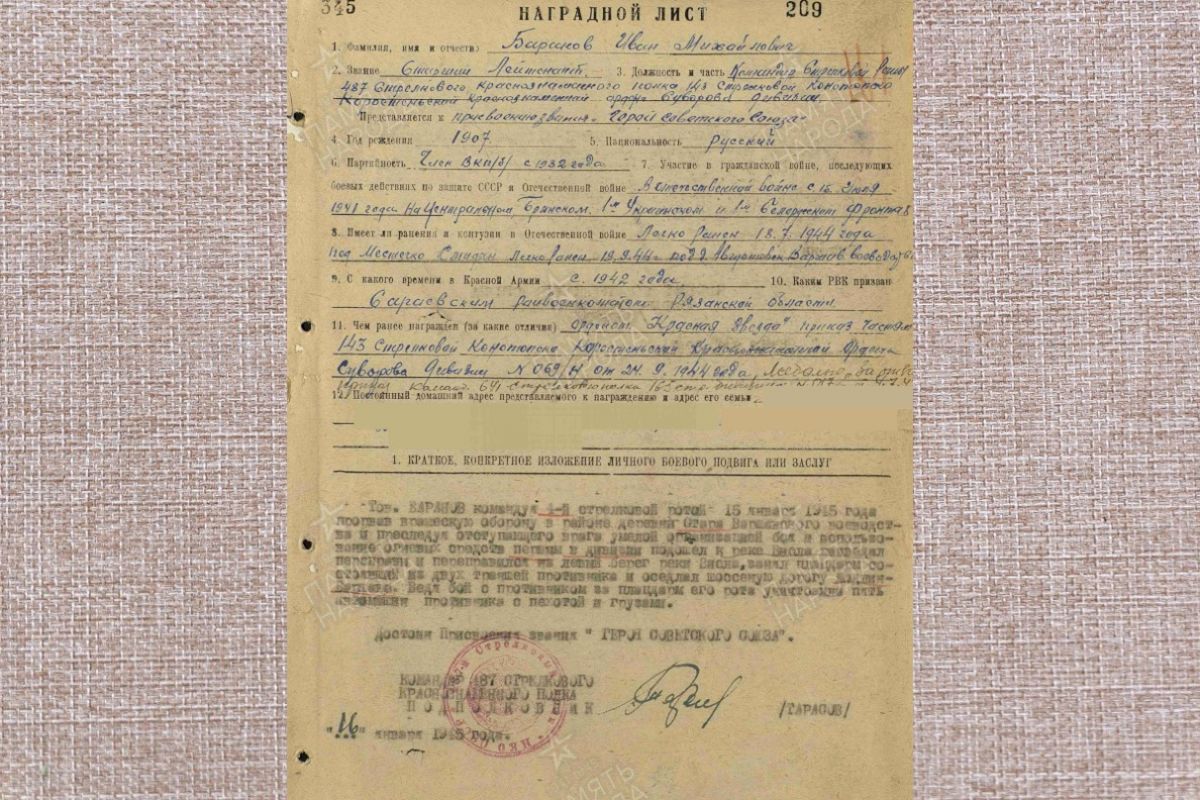 345 НАГРАДНОЙ ЛИСТ 209
1. Фамилия, имя и отчество Баранов Иван Михайлович
2. Звание Старший Лейтенант. 3. Должность и часть Командир Стрелковой Роты
487 Стрелкового, Краснознаменного полка 143 Стрелковой Конотопско
Коростеньской Краснознаменной ордена Суворова дивизии
Представляется к присвоению звания „Герой Советского Союза"
4. Год рождения 1907 5. Национальность русский
6. Партийность Член ВКП(б) с 1932 года 7. Участие в гражданской войне, последующих
боевых действиях по защите СССР и Отечественной войне В отечественной войне с 15 Июля
1941 года На Центральном Брянском, 1м Украинском и 1м Белорусском Фронтах
8. Имеет ли ранения и контузии в Отечественной войне Легко ранен 18.7.1944 года
под Местечко легко ранен 19.9.44г под д.
9. С какого времени в Красной Армии с 1942 года 10. Каким РВК призван
Сараевским райвоенкоматом Рязанской области.
11. Чем ранее награжден (за какие отличия) орденом „Красная звезда" приказ частям
143 Стрелковой Конотопско Коростеньской Краснознаменной ордена
Суворова дивизии N 069/Н от 24.9.1944 года,
12. Постоянный домашний адрес представляемого к награждению и адрес его семьи
1. КРАТКОЕ, КОНКРЕТНОЕ ИЗЛОЖЕНИЕ ЛИЧНОГО БОЕВОГО ПОДВИГА ИЛИ ЗАСЛУГ
Тов. БАРАНОВ командуя 4-й стрелковой ротой 15 января 1945 года
прорвав вражескую оборону в района деревни Стара Варшавского воеводст-
ва и преследуя отступающего врага умелой организацией боя и использо-
вание огневых средств первым в дивизии подошел к реке Висла
и переправился на левый берег реки Висла, занял плацдарм со-
стоящий из двух траншей противника и оседлал шоссеную дорогу
Ведя бой с противником за плацдарм его рота уничтожила пять
автомашин противника с пехотой и грузами.
Достоин Присвоения звания " ГЕРОЯ СОВЕТСКОГО СОЮЗА".
КОМАНДИР 487 СТРЕЛКОВОГО
КРАСНОЗНАМЕННОГО ПОЛКА
ПОДПОЛКОВНИК /ТАРАСОВ/
"16" января 1945 года.
ПАМЯТЬ НАРОДА